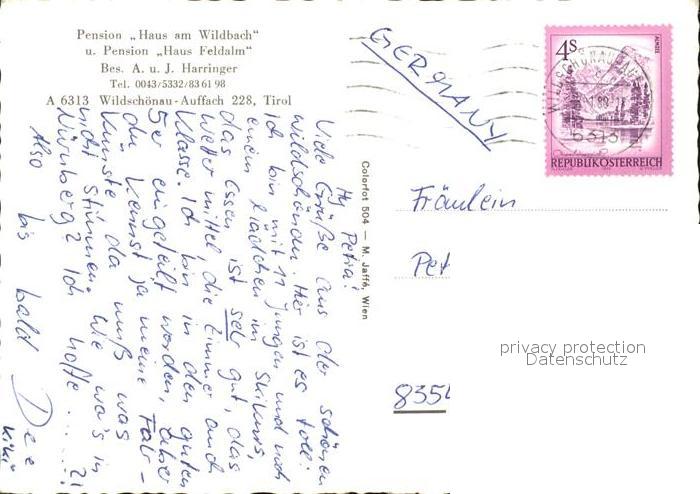 Pension „Haus am Wildbach“
u. Pension „Haus Feldalm“
Bes. A. u. J. Harringer
Tel. 0043/5332/83 61 98
A 6313 Wildschönau-Auffach 228, Tirol
GERMANY
4S
REPUBLIKÖSTERREICH
Hy Petra!
Viele Grüße aus der schönen
Wildschönau. Hier ist es toll!
Ich bin mit 11 Jungen und noch
einem Mädchen im Skikurs,
das Essen ist seh gut, das
Wetter mittel, die Zimmer auch
Klasse. Ich bin in den guten
5er eingeteilt worden, aber
du kennst ja meine Fahr-
künste da muß was
nicht stimmen. Wie wa's in
Nürnberg? Ich hoffe ....?!
Also bis bald
Dee
Colorfot 504 — M. Jaffé, Wien
Fräulein
Pet
835
privacy protection
Datenschutz